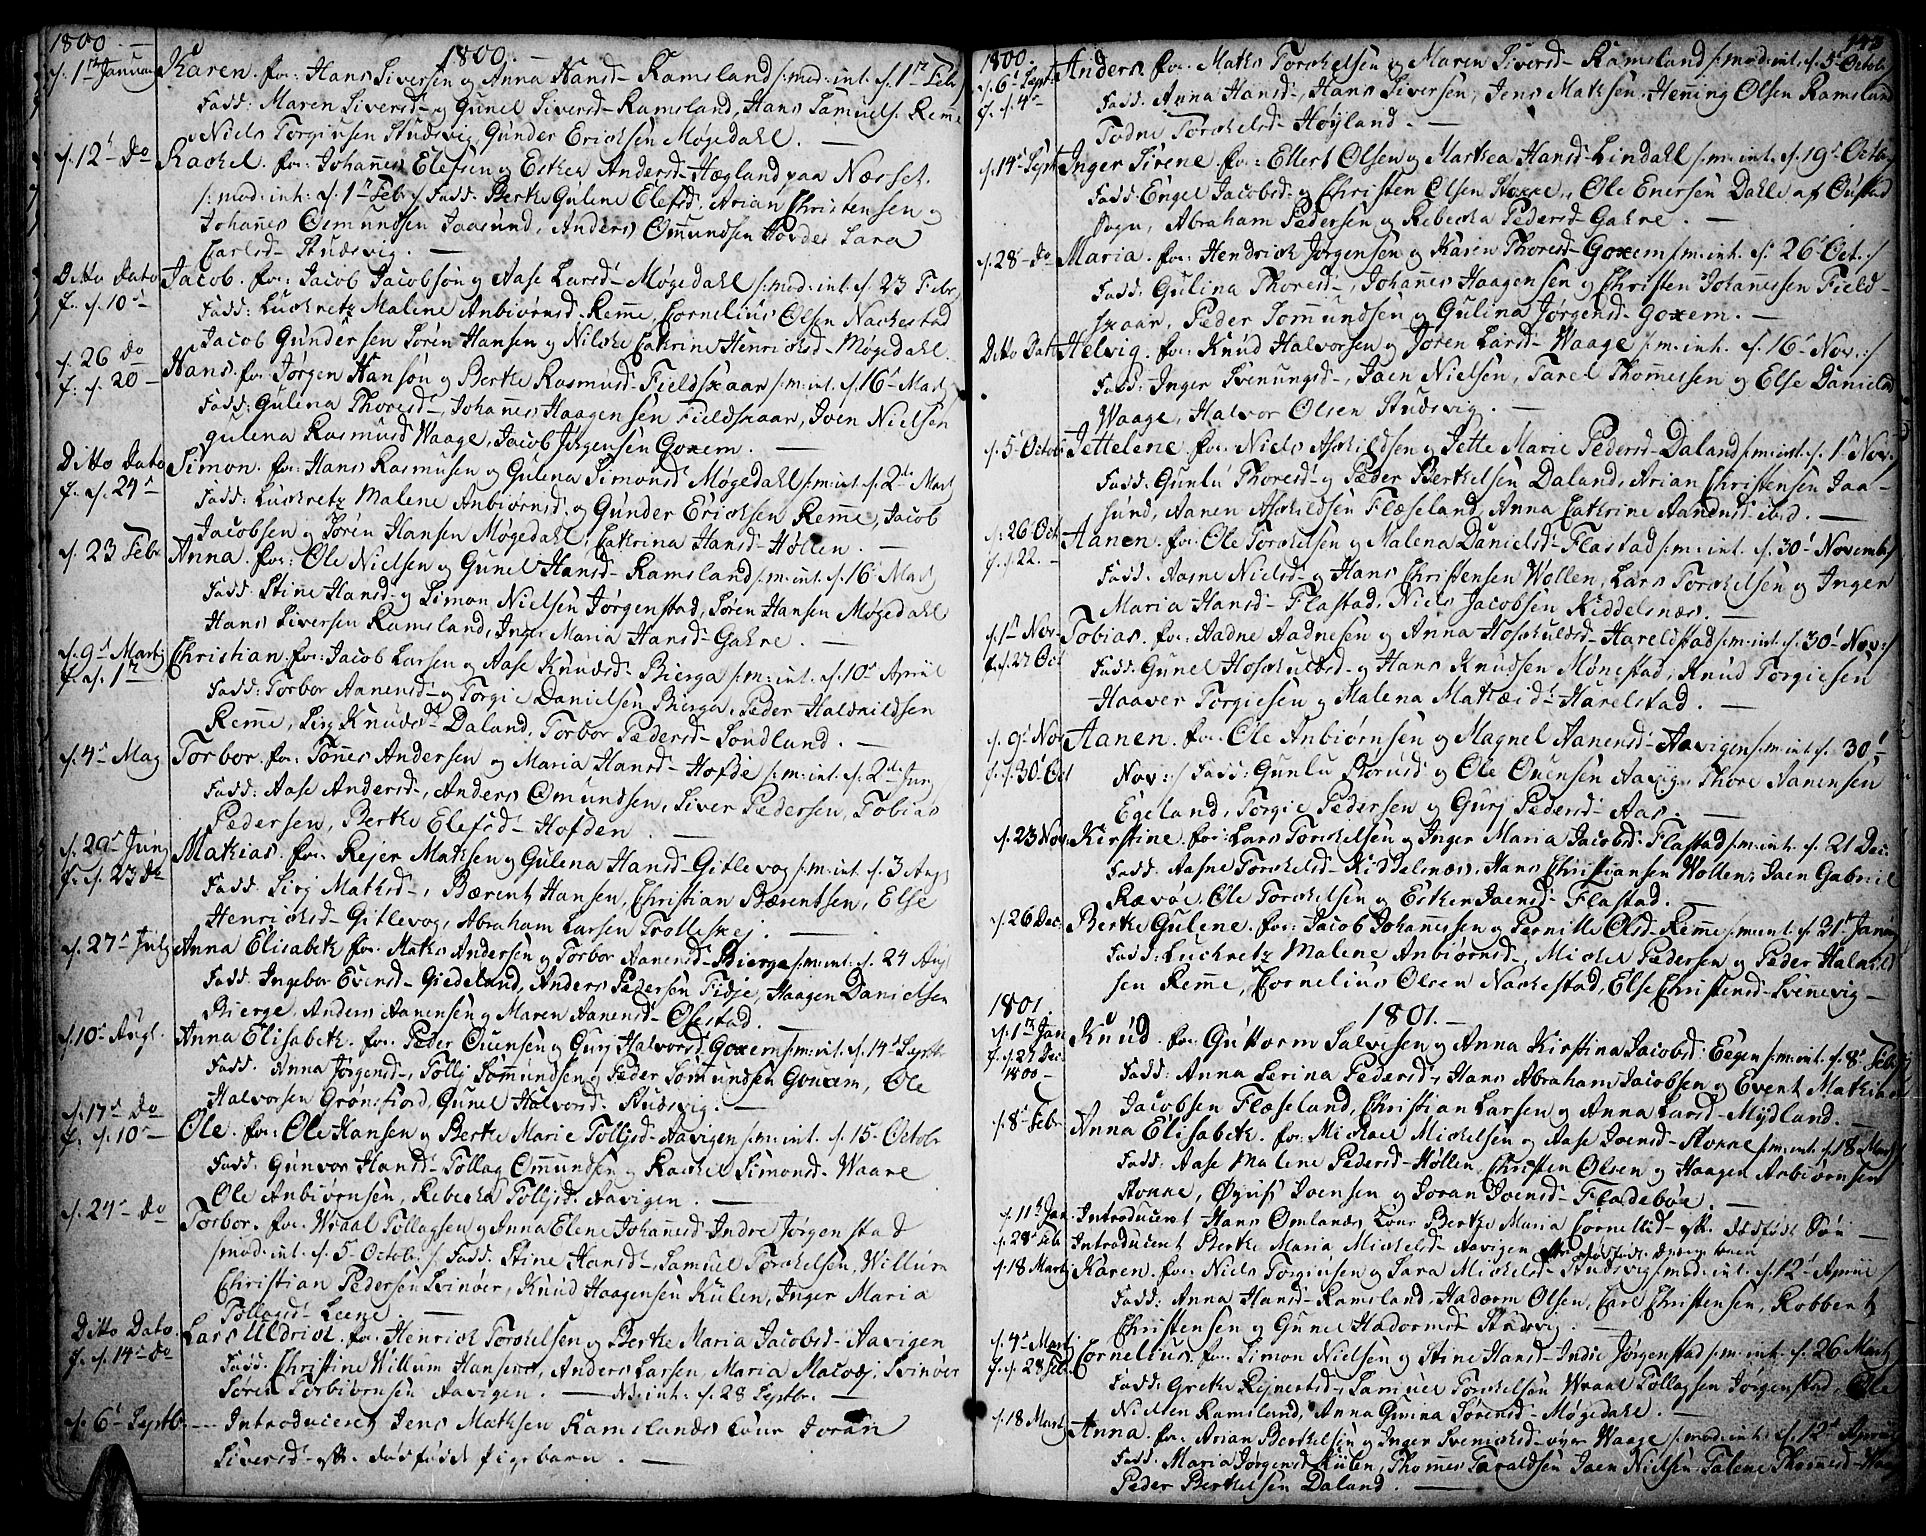 1800. —
1800. —
d. 1te Januar Karen. for: Hans Siversen og Anna Hansd- Ramsland /:mod: int. d. 1te Feb/
Fadd: Maren Siversd- og Gunel Siversd- Ramsland, Hans Samuels. Remme
Niels Torgiusen Studsvig Gunder Ericksen Møgedahl. —
d. 12t Do Rachel. for: Johannes Elefsen og Ester Andersd- Hægland paa Næsset.
/: mod: int: d. 1te Feb:/ Fadd: Berte Gulene Elefsd, Arian Christensen og
Johannes Osmundsen Jaasund, Anders Omundsen Hovden Sara
Carlsd- Studsvig. —
Ditto Dato Jacob. for: Jacob Jacobsøn og Aase Larsd- Møgedahl /:mod: int. d. 23 Febr
f. d. 10t Fadd: Luckretz Malene Anbiørnsd. Remme, Cornelius Olsen Nackestad
Jacob Gundersen Søren Hansen og Nilske Cathrine Henricksd- Møgedahl.
d. 26 do Hans. for Jørgen Hansøn og Berte Rasmusd- Fieldskaar /:m: int. d. 16t Mart
f. d. 20 — Fadd: Gulena Thoresd-, Johannes Haagensen Fieldskaar, Joen Nielsen
Gulena Rasmusd Waage, Jacob Jørgensen Goxem. —
Ditto Dato Simon. for: Hans Rasmusen og Gulena Simonsd Møgedahl /:m: int d. 2de Mart
f. d. 24t Fadd: Luckretz Malene Anbiørnsd og Gunder Ericksen Remme, Jacob
Jacobsen og Søren Hansen Møgedahl, Cathrina Hansd- Høllen. —
d. 23 Febr Anna. for: Ole Nielsen og Gunel Hansd- Ramsland /:m: int. d. 16t Mart
Fadd. Stine Hansd- og Simon Nielsen Jørgenstad, Søren Hansen Møgedahl
Hans Siversen Ramsland, Inger Maria Hansd- Gahre. —
d. 9t Martj Christian. for: Jacob Larsen og Aase Knudsd- Bierga /:m: int. d. 10t Apriil
f. d. 1te Fadd: Torbor Aanensd- og Torgie Danielsen Bierga, Peder Halvhildsen
Remme, Sirj Knudsd- Daland, Torbor Pedersd- Sondland. —
d. 4t Maj Torbor. for: Tønnes Andersen og Maria Hansd- Hofde /:m: int. d. 2de Junj
Fadd: Aase Andersd-, Anders Omundsen, Siver Pedersen, Tobias
Pedersen, Berte Elefsd- Hofden. —
d. 29t Junj Mathias. for: Rejer Mathsen og Gulena Hansd- Gitlevog /:m: int. d. 3 Aug
f. d. 23 do Fadd. Sirj Mathsd-, Bærent Hansen, Christian Bærentsen, Else
Henricksd- Gitlevog, Abraham Larsen Trolleskej. —
d. 27t Julj Anna Elisabet for: Mats Andersen og Torbor Aanensd- Bierge /:m: int: d. 24 Aug
Fadd. Ingebor Evensd- Giedeland, Anders Pedersøn Fidje, Haagen Danielsen
Bierge, Anders Aanensen og Maren Aanensd- Ølstad. —
d. 10t Augl. Anna Elisabet. for: Peder Ouensen og Gurj Halvorsd- Goxem /:m: int. d. 14t Septbr
Fadd. Anna Jørgensd-, Tollj Sommundsen og Peder Sommundsen Goxem, Ole
Halvorsen Grønsfiord, Gunel Halvorsd: Studsvig. —
d. 17t do Ole. for: Ole Hansen og Berte Marie Tolljsd- Aavigen /:m: int. d. 15- Octobr
f. d. 10t Fadd: Gunvor Hansd- Tollag Omundsen og Rachel Simonsd- Waare
Ole Anbiørnsen, Rebecka Tolljsd. Aavigen. —
d. 24t do Torbor. for: Wraal Tollagsen og Anna Elene Johannesd- Indre Jørgenstad
/:mod: int. d. 5- Octobr:/ Fadd: Stine Hansd-, Samuel Torckelsen, Willum
Christian Pedersen Svinøer, Knud Haagensen Kulen, Inger Maria
Tollagsd- Leene. —
Ditto Dato Lars Uldrick. for: Henrick Torckelsen og Berte Maria Jacobsd- Aavigen
f. d. 14t do Fadd. Christine Willum Hansens, Anders Larsen, Maria Macodj Svinøer
Søren Torbiørnsen Aavigen. — M: int: d. 28 Septbr. —
d. 6t Septbr. — Introduceret Jens Mathsen Ramslands Kone Joran
Siversd- efter dødfødt pigebarn. —
1800.
d. 6t Sept: Anders. for: Maths Torckelsen og Maren Siversd- Ramsland /:mod: int. d. 5t Octob
f. d. 4t Fadd: Anna Hansd-, Hans Siversen, Jens Mathsen, Henning Olsen Ramsland
Todne Torckelsd- Høyland. —
d. 14t Sept Inger Sirene. for: Ellert Olsen og Marthea Hansd- Lindahl /:m: int. d. 19t Octb.
Fadd: Engel Jacobsd- og Christen Olsen Stokke, Ole Enersen Dahle af Oustad
Sogn, Abraham Pedersen og Rebecka Pedersd- Gahre. —
d. 28t Do Maria. for: Hendrick Jørgensen og Karen Thoresd- Goxem /:m: int. d. 26t Oct:/
Fadd: Gulina Thoresd-, Johannes Haagensen og Christen Johannessen Field-
skaar, Peder Sommundsen og Gulina Jørgensd- Goxem. —
Ditto Dato Helvig. for: Knud Halvorsen og Joren Larsd- Waage /:m: int. d. 16t Nov:/
Fadd: Inger Svenungsd-, Joen Nielsen, Tarel Thomessen og Else Danielsd
Waage, Halvor Olsen Studsvig. —
d. 5t Octob: Jettelene. for: Niels Aschildsen og Jette Marie Pedersd- Daland /:m: int. d. 1te Nov:/
Fadd: Gunlu Thoresd- og Peder Berthelsen Daland, Arian Christensen Jaa-
sund, Aanen Aschildsen Flæseland, Anna Cathrine Aanensd- ibid. —
d. 26t Oct Aanen. for: Ole Torckelsen og Malena Danielsd- Flastad /:m: int. d. 30t Novemb/
f. d. 22. — Fadd: Aasne Nielsd- og Hans Christensen Wollen, Lars Torckelsen og Inger
Maria Hansd- Flastad, Niels Jacobsen Riddelsnæs. —
d. 1te Nov Tobias. for: Aadne Aadnesen og Anna Hoskuldsd- Harelstad /:m: int. d. 30t Nov:/
f. d. 27 Oct Fadd: Gunel Hoskuldsd- og Hans Knudsen Mønestad, Knud Torgiesen
Haaver Torgiesen og Malena Mathæid- Harelstad. —
d. 9t Nov Aanen. for: Ole Anbiørnsen og Magnel Aanensd- Aavigen /:m: int d. 30t
f. d. 30t Oct Nov:/ Fadd: Gunlu Berusd- og Ole Ouensen Aavig, Thore Aanensen
Egeland, Torgie Pedersen og Gurj Pedersd- Aas. —
d. 23 Nov Kirstine. for: Lars Torckelsen og Inger Maria Jacobsd- Flastad /:m: int. d. 21 Dec:
Fadd: Aasne Torckelsd- Riddelsnæs, Hans Christiansen Wollen, Joen Gabriel
Rævøe, Ole Torckelsen og Ester Joensd- Flastad. —
d. 26 Dec: Berte Gulene. for: Jacob Johannessen og Pernille Olsd- Remme /:m: int d. 31t Januar
Fadd: Luckretz Malene Anbiørnsd-, Michel Pedersen og Peder Halvild-
sen Remme, Cornelius Olsen Nackestad, Else Christensd- Svenevig —
1801.
1801. —
d. 1te Jan Knud. for: Guttorm Salvesen og Anna Kirstina Jacobsd: Eegen /:m: int. d. 8t Feb
f. d. 27 Dec 1800 — Fadd: Anna Serina Pedersd-, Hans Abraham Jacobsen og Event Mathias
Jacobsen Flæseland, Christian Larsen og Anna Larsd- Mydland. —
d. 8t Febr Anna Elisabet. for: Michael Mickelsen og Aase Joensd- Stokke /:m: int. d. 18 Mart
Fadd: Aase Malene Pedersd- Høllen, Christen Olsen og Haagen Anbiørnsen
Stokke, Øyuf Joensen og Joran Joensd- Fladebøe. —
d. 11te Jan. Introduceret Hans Omlands Kone Berte Maria Cornelisd- eft. dødfødt Søn —
d. 28t Feb Introduceret Berte Maria Mickelsd- Aavigen efter dødfødt
d. 18 Martj Karen. for: Niels Torgiusen og Sara Mickelsd- Studsvig /:mod: int. d. 12t Apriil /
Fadd: Anna Hansd- Ramsland, Hadorm Olsen, Carl Christensen, Robbert
Christensen og Gunel Hadormsd Studsvig. —
d. 4t Martj Cornelius. for: Simon Nielsen og Stine Hansd- Indre Jørgenstad /:m: int. d. 26 Martj
f. d. 28 Feb. Fadd: Grethe Rejnertsd-, Samuel Torckelsøn Wraal Tollagsen Jørgenstad, Ole
Nielsen Ramsland, Anna Gunina Sørensd- Møgedahl. —
d. 18 Mart Anna. for: Arian Berthelsen og Inger Svenucksd- øvre Waage /:mod: int: d. 12t Apriil
Fadd: Maria Jørgensd Kulen, Thommes Taraldsen Joen Nielsen, Talene Thomesd- Waage
Peder Berthelsen Daland. —